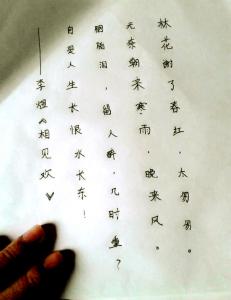 林花谢了春红，太匆匆。
无奈朝来寒雨，晚来风。
胭脂泪，留人醉，几时重？
自是人生长恨水长东！
——李煜《相见欢》